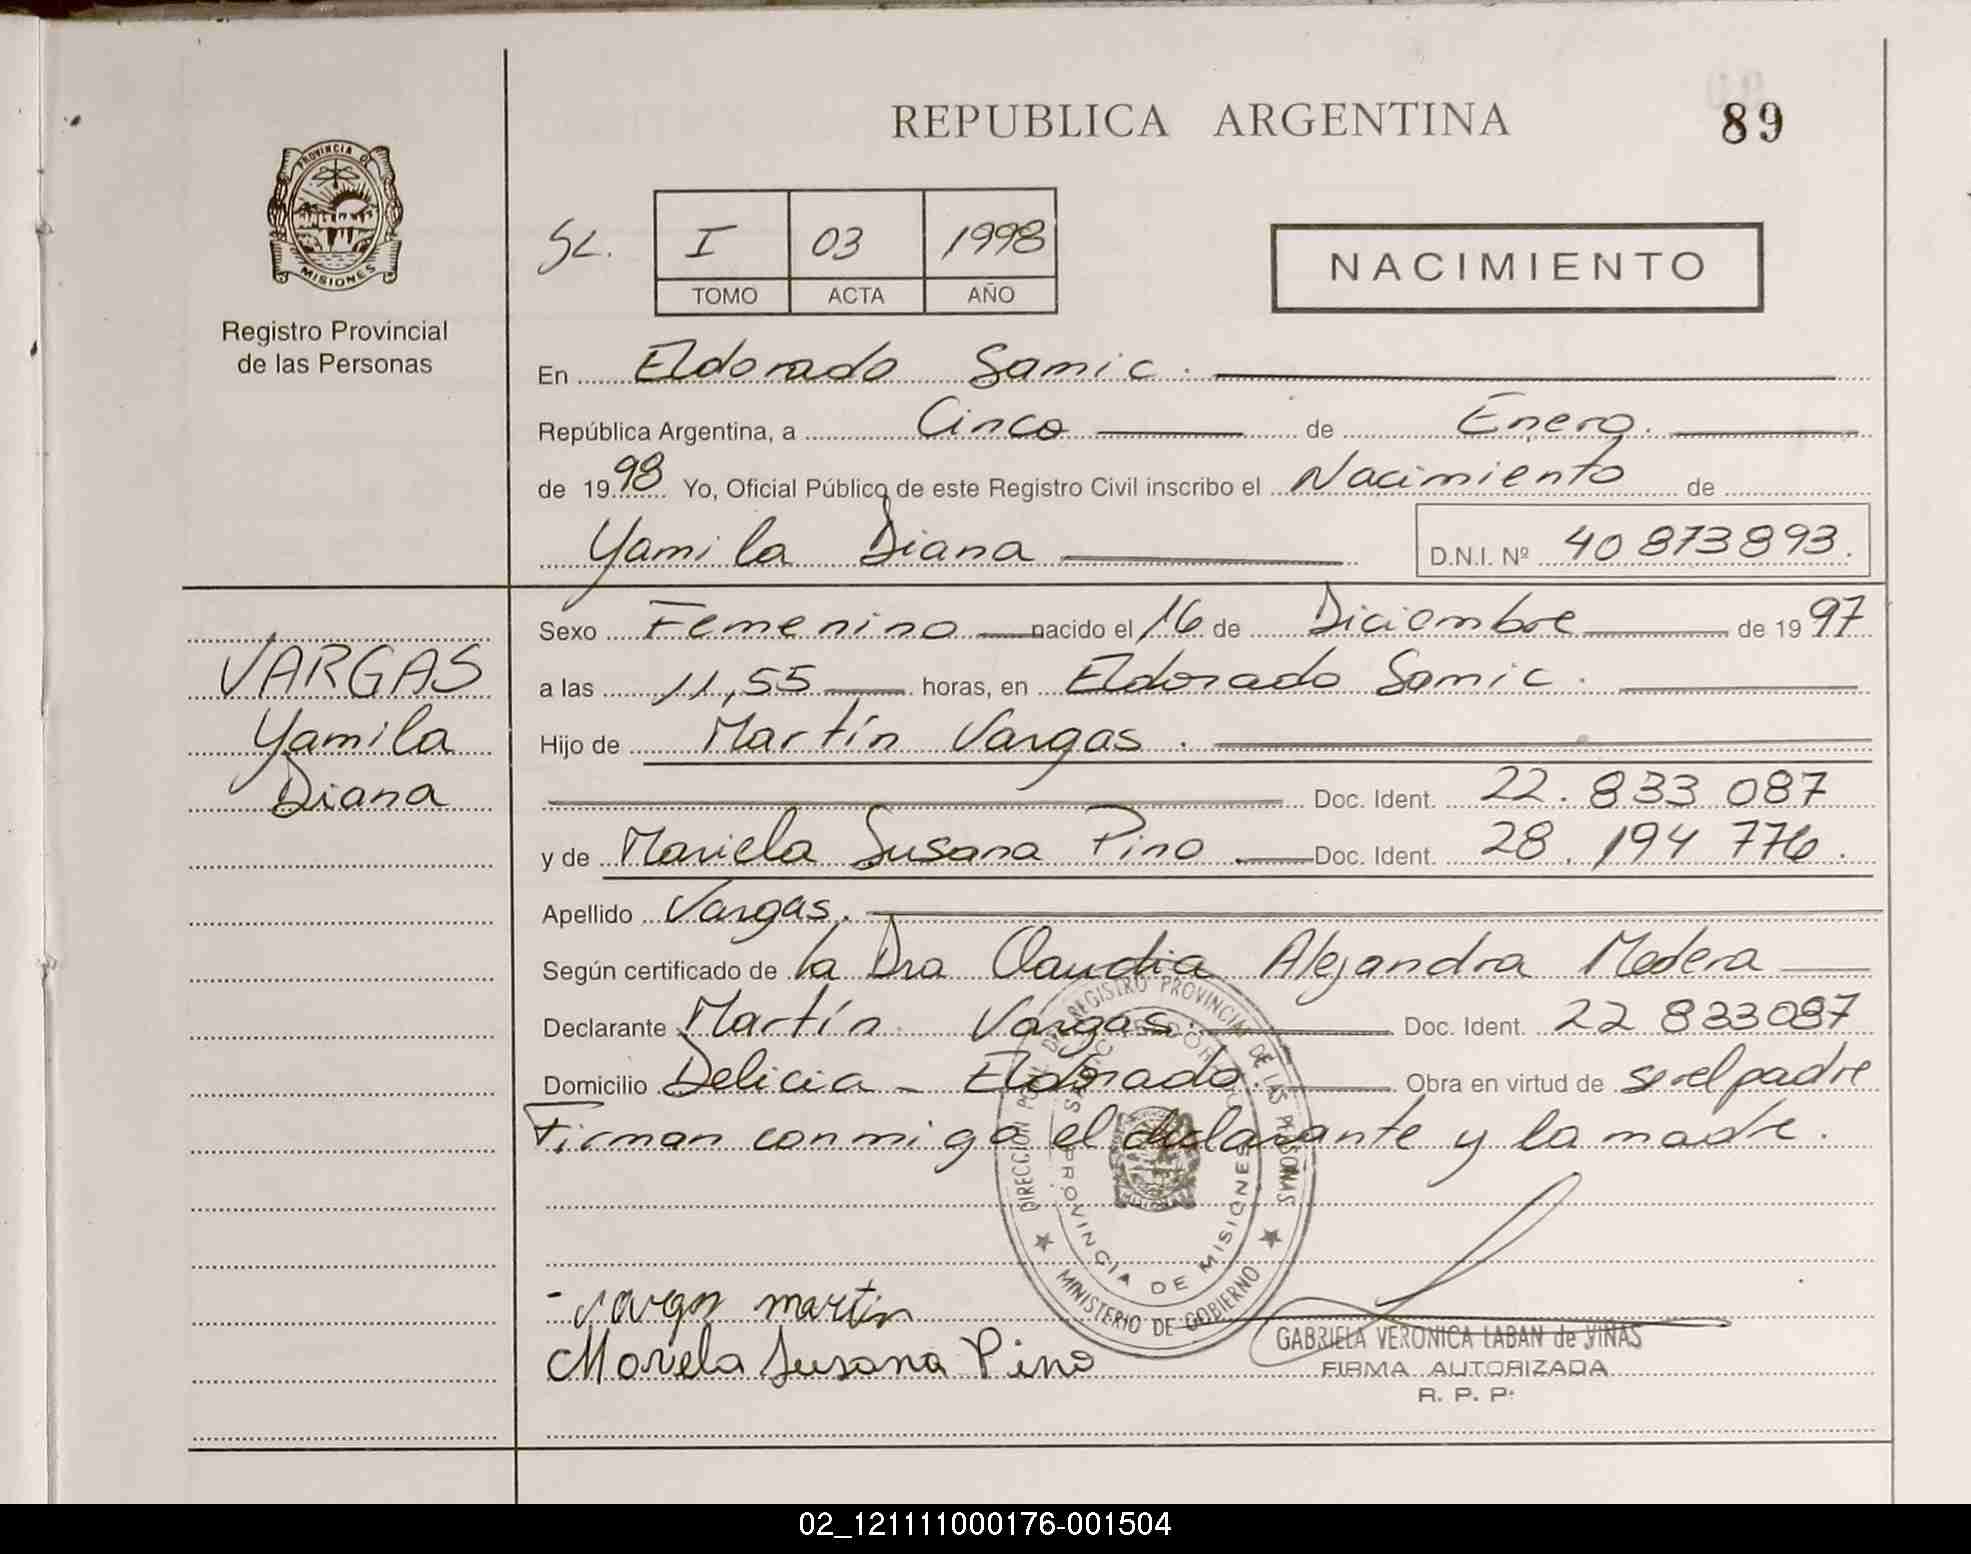 REPUBLICA ARGENTINA
89
PROVINCIA DE
MISIONES
Registro Provincial
de las Personas
SL.
I 03 1998
TOMO ACTA AÑO
NACIMIENTO
En Eldorado Samic.
República Argentina, a Cinco de Enero.
de 1998 Yo, Oficial Público de este Registro Civil inscribo el Nacimiento de
Yamila Diana D.N.I. Nº 40 873893.
VARGAS
Yamila
Diana
Sexo Femenino nacido el 16 de Diciembre de 1997
a las 11,55 horas, en Eldorado Samic.
Hijo de Martín Vargas.
Doc. Ident. 22.833 087
y de Mariela Susana Pino. Doc. Ident. 28.194 776.
Apellido Vargas.
Según certificado de la Dra Claudia Alejandra Madera
Declarante Martín Vargas. Doc. Ident. 22 833087
Domicilio Delicia - Eldorado. Obra en virtud de ser el padre
Firman conmigo el declarante y la madre.
REGISTRO PROVINCIAL DE LAS PERSONAS
PROVINCIA DE MISIONES
MINISTERIO DE GOBIERNO
- Vargas martin
Mariela Susana Pino
GABRIELA VERONICA LABAN de VIÑAS
FIRMA AUTORIZADA
R. P. P.
02_121111000176-001504